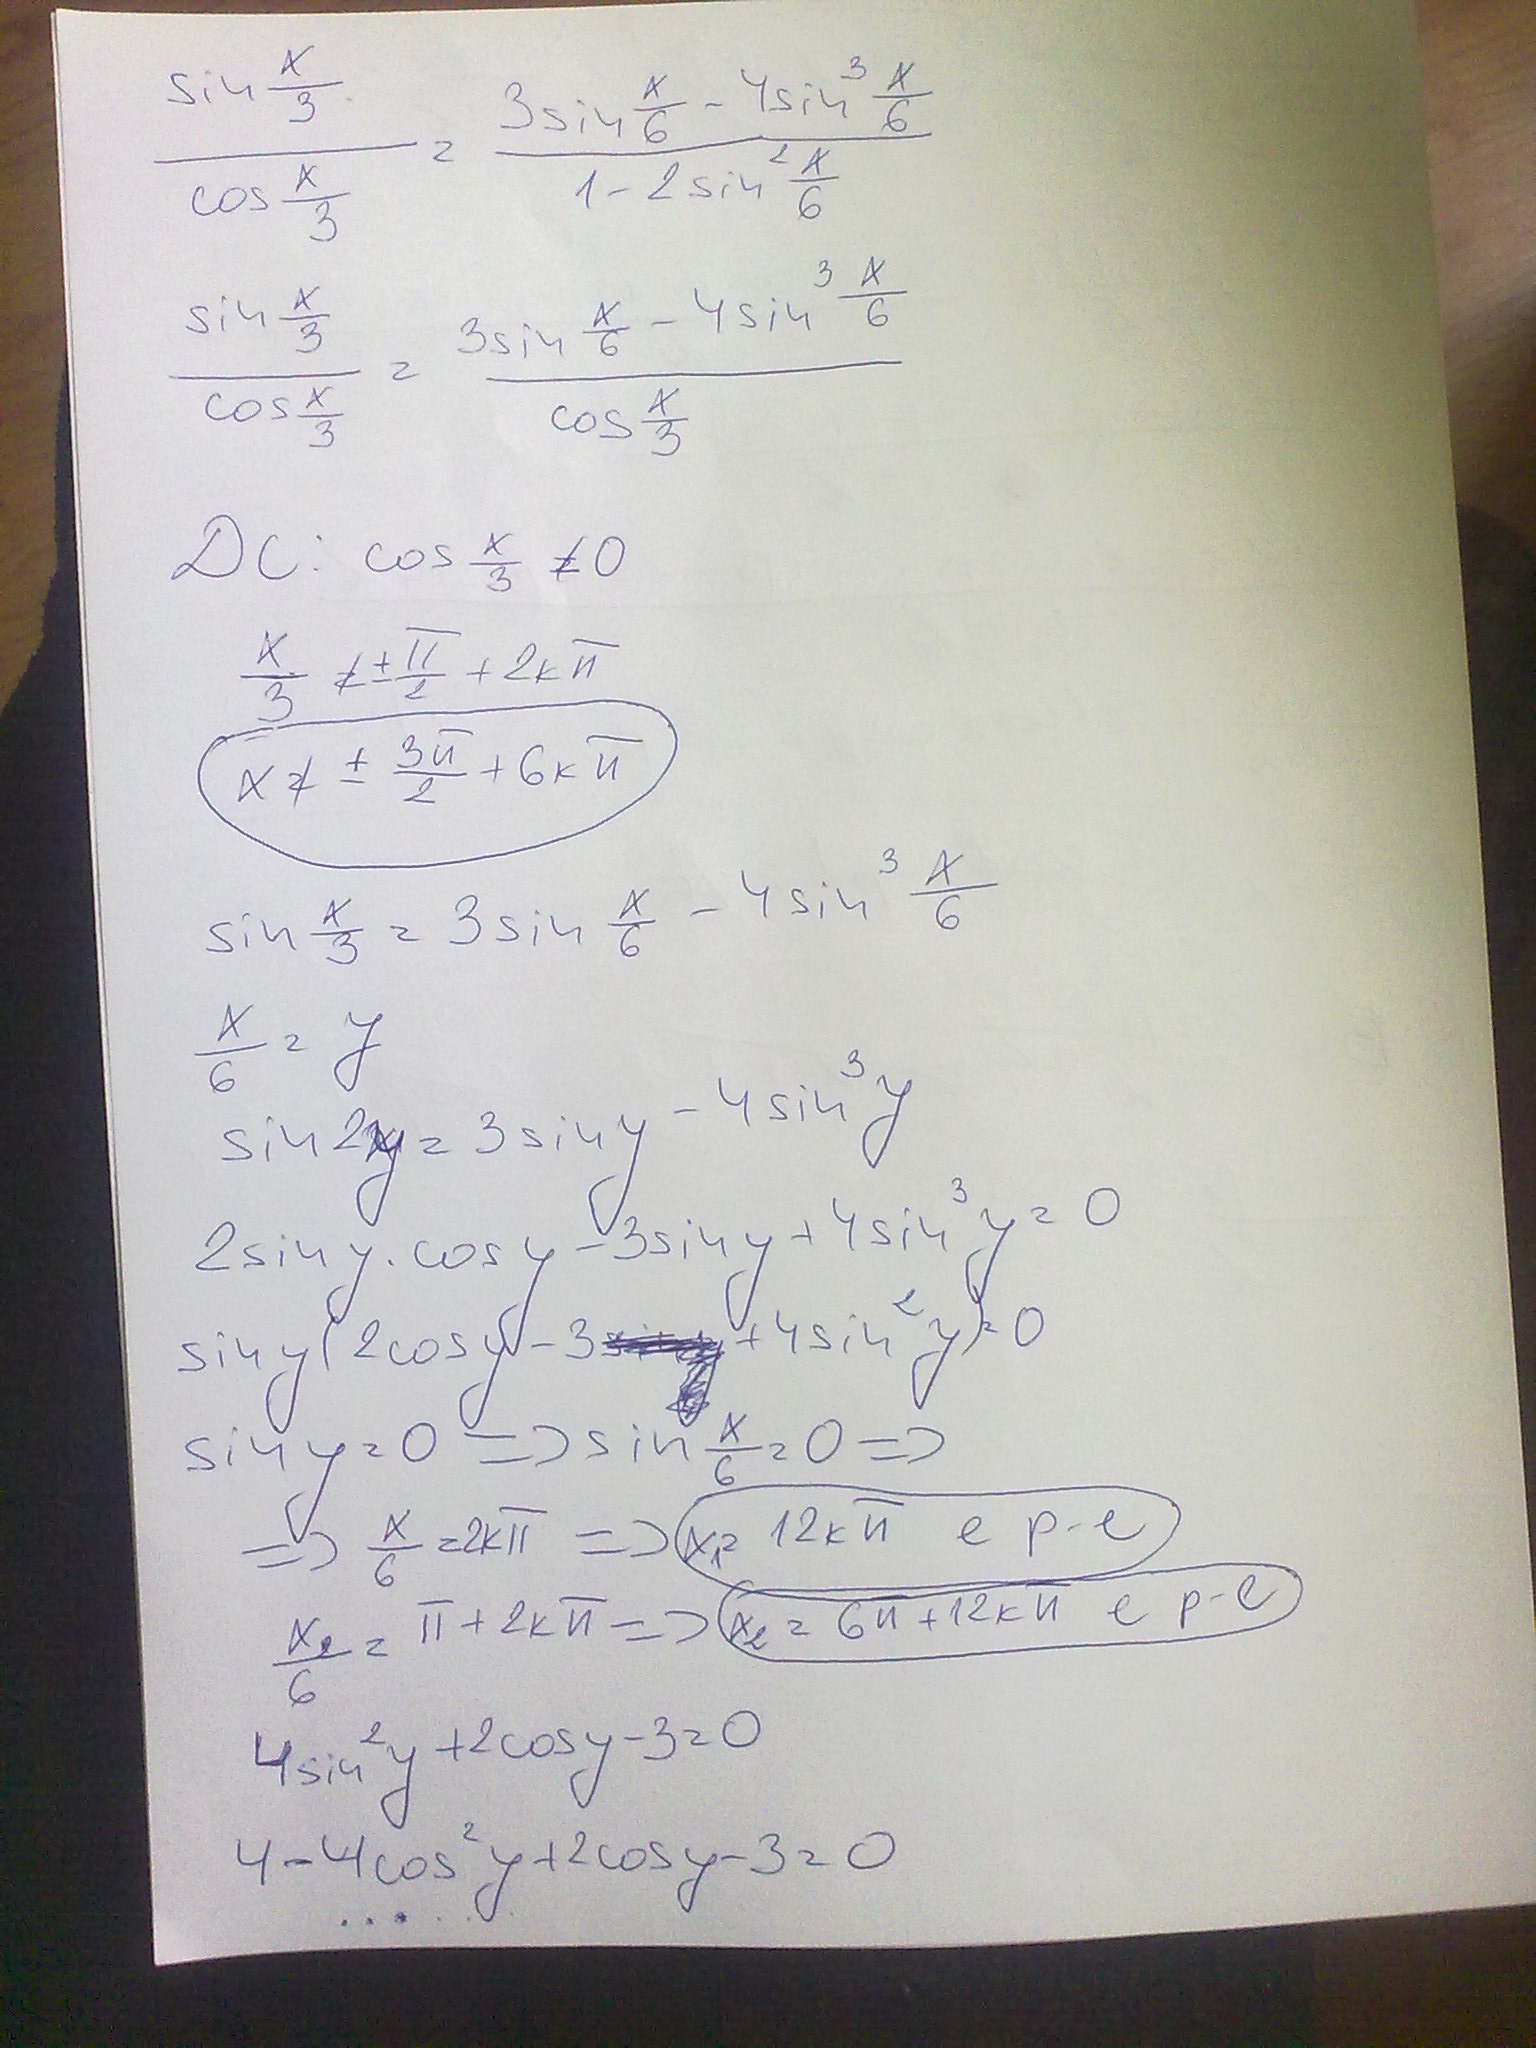 sin x/3 / cos x/3 = (3sin x/6 - 4sin³ x/6) / (1 - 2sin² x/6)
sin x/3 / cos x/3 = (3sin x/6 - 4sin³ x/6) / cos x/3
ДС: cos x/3 ≠ 0
x/3 ≠ ± π/2 + 2kπ
x ≠ ± 3π/2 + 6kπ
sin x/3 = 3sin x/6 - 4sin³ x/6
x/6 = y
sin2y = 3siny - 4sin³y
2siny.cosy - 3siny + 4sin³y = 0
siny(2cosy - 3 + 4sin²y) = 0
siny = 0 => sin x/6 = 0 =>
=> x/6 = 2kπ => x₁ = 12kπ е р-е
x₂/6 = π + 2kπ => x₂ = 6π + 12kπ е р-е
4sin²y + 2cosy - 3 = 0
4 - 4cos²y + 2cosy - 3 = 0
.....